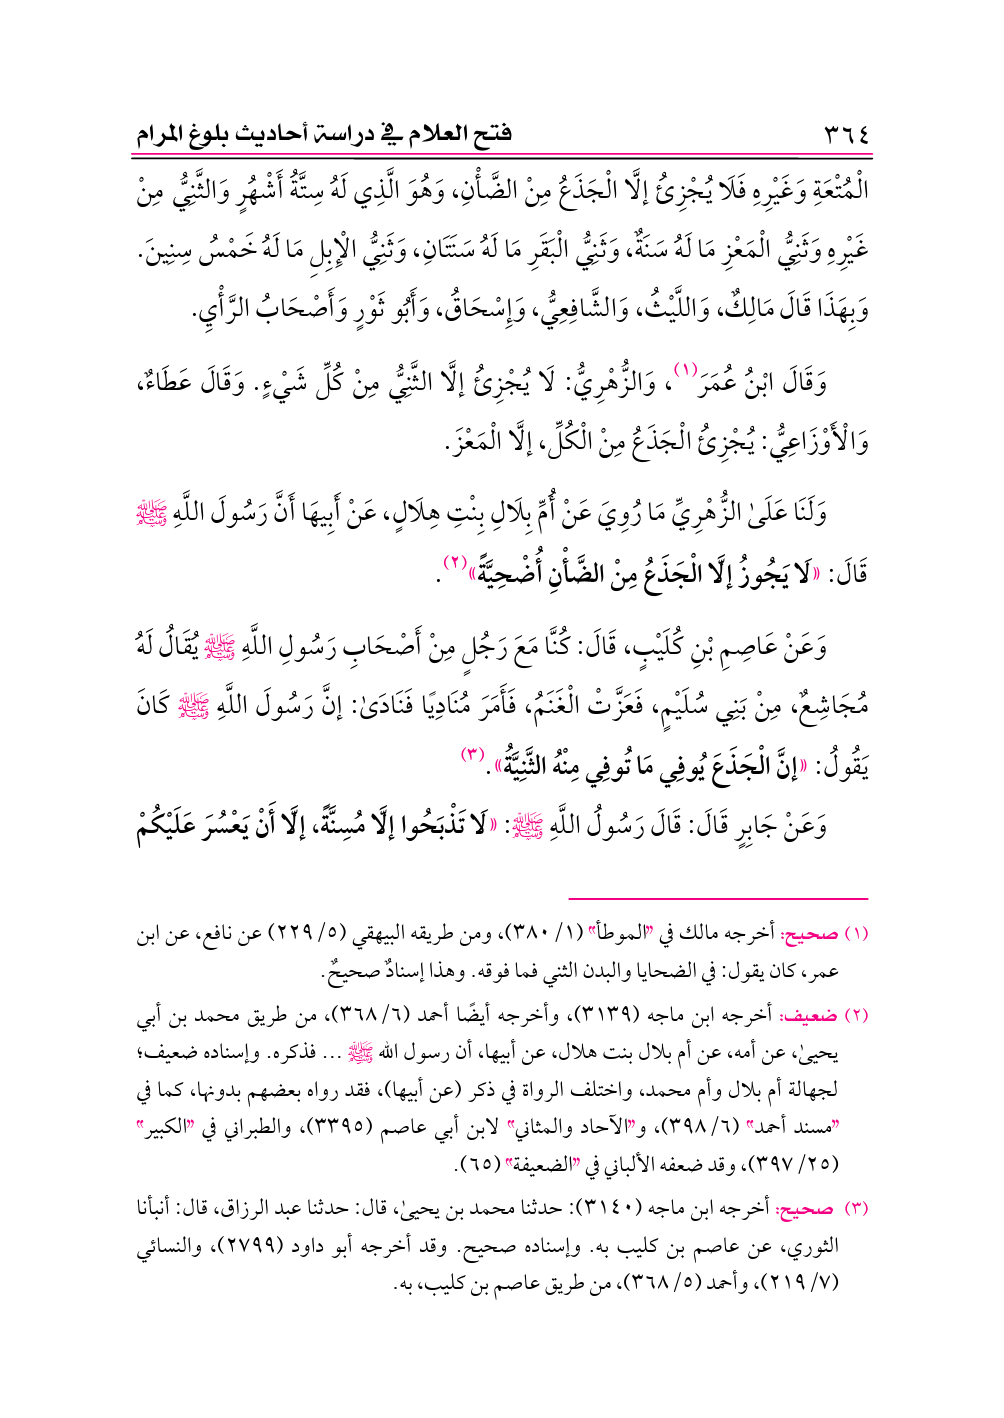 ٣٦٤ فتح العلام في دراسة أحاديث بلوغ المرام
الْمُتْعَةِ وَغَيْرِهِ فَلَا يُجْزِئُ إلَّا الْجَذَعُ مِنْ الضَّأْنِ، وَهُوَ الَّذِي لَهُ سِتَّةُ أَشْهُرٍ وَالثَّنِيُّ مِنْ
غَيْرِهِ وَثَنِيُّ الْمَعْزِ مَا لَهُ سَنَةٌ، وَثَنِيُّ الْبَقَرِ مَا لَهُ سَنَتَانِ، وَثَنِيُّ الْإِبِلِ مَا لَهُ خَمْسُ سِنِينَ.
وَبِهَذَا قَالَ مَالِكٌ، وَاللَّيْثُ، وَالشَّافِعِيُّ، وَإِسْحَاقُ، وَأَبُو ثَوْرٍ وَأَصْحَابُ الرَّأْيِ.
وَقَالَ ابْنُ عُمَرَ(١)، وَالزُّهْرِيُّ: لَا يُجْزِئُ إلَّا الثَّنِيُّ مِنْ كُلِّ شَيْءٍ. وَقَالَ عَطَاءٌ،
وَالْأَوْزَاعِيُّ: يُجْزِئُ الْجَذَعُ مِنْ الْكُلِّ، إلَّا الْمَعْزَ.
وَلَنَا عَلَىٰ الزُّهْرِيِّ مَا رُوِيَ عَنْ أُمِّ بِلَالِ بِنْتِ هِلَالٍ، عَنْ أَبِيهَا أَنَّ رَسُولَ اللَّهِ ﷺ
قَالَ: «لَا يَجُوزُ إلَّا الْجَذَعُ مِنْ الضَّأْنِ أُضْحِيَّةً»(٢).
وَعَنْ عَاصِمِ بْنِ كُلَيْبٍ، قَالَ: كُنَّا مَعَ رَجُلٍ مِنْ أَصْحَابِ رَسُولِ اللَّهِ ﷺ يُقَالُ لَهُ
مُجَاشِعٌ، مِنْ بَنِي سُلَيْمٍ، فَعَزَّتْ الْغَنَمُ، فَأَمَرَ مُنَادِيًا فَنَادَىٰ: إنَّ رَسُولَ اللَّهِ ﷺ كَانَ
يَقُولُ: «إنَّ الْجَذَعَ يُوفِي مَا تُوفِي مِنْهُ الثَّنِيَّةُ».(٣)
وَعَنْ جَابِرٍ قَالَ: قَالَ رَسُولُ اللَّهِ ﷺ: «لَا تَذْبَحُوا إلَّا مُسِنَّةً، إلَّا أَنْ يَعْسُرَ عَلَيْكُمْ
(١) صحيح: أخرجه مالك في "الموطأ" (١/ ٣٨٠)، ومن طريقه البيهقي (٥/ ٢٢٩) عن نافع، عن ابن
عمر، كان يقول: في الضحايا والبدن الثني فما فوقه. وهذا إسنادٌ صحيحٌ.
(٢) ضعيف: أخرجه ابن ماجه (٣١٣٩)، وأخرجه أيضًا أحمد (٦/ ٣٦٨)، من طريق محمد بن أبي
يحيىٰ، عن أمه، عن أم بلال بنت هلال، عن أبيها، أن رسول الله ﷺ ... فذكره. وإسناده ضعيف؛
لجهالة أم بلال وأم محمد، واختلف الرواة في ذكر (عن أبيها)، فقد رواه بعضهم بدونها، كما في
"مسند أحمد" (٦/ ٣٩٨)، و"الآحاد والمثاني" لابن أبي عاصم (٣٣٩٥)، والطبراني في "الكبير"
(٢٥/ ٣٩٧)، وقد ضعفه الألباني في "الضعيفة" (٦٥).
(٣) صحيح: أخرجه ابن ماجه (٣١٤٠): حدثنا محمد بن يحيىٰ، قال: حدثنا عبد الرزاق، قال: أنبأنا
الثوري، عن عاصم بن كليب به. وإسناده صحيح. وقد أخرجه أبو داود (٢٧٩٩)، والنسائي
(٧/ ٢١٩)، وأحمد (٥/ ٣٦٨)، من طريق عاصم بن كليب، به.